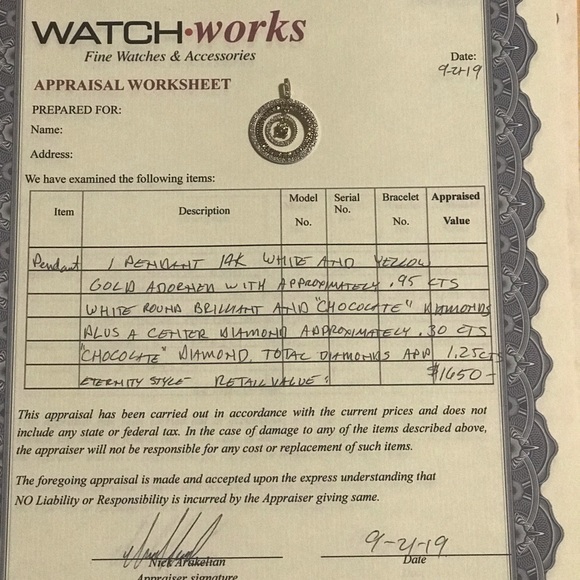 WATCH·works
Fine Watches & Accessories
Date:
9-21-19
APPRAISAL WORKSHEET
PREPARED FOR:
Name:
Address:
We have examined the following items:
Item Description Model No. Serial No. Bracelet No. Appraised Value
Pendant 1 PENDANT 14K WHITE AND YELLOW
GOLD ADORNED WITH APPROXIMATELY .95 CTS
WHITE ROUND BRILLIANT AND "CHOCOLATE" DIAMONDS
PLUS A CENTER DIAMOND APPROXIMATELY .30 CTS
"CHOCOLATE" DIAMOND. TOTAL DIAMONDS APP 1.25CTS
ETERNITY STYLE RETAIL VALUE: $1650-
This appraisal has been carried out in accordance with the current prices and does not
include any state or federal tax. In the case of damage to any of the items described above,
the appraiser will not be responsible for any cost or replacement of such items.
The foregoing appraisal is made and accepted upon the express understanding that
NO Liability or Responsibility is incurred by the Appraiser giving same.
9-21-19
Nick Arakelian Date
Appraiser signature